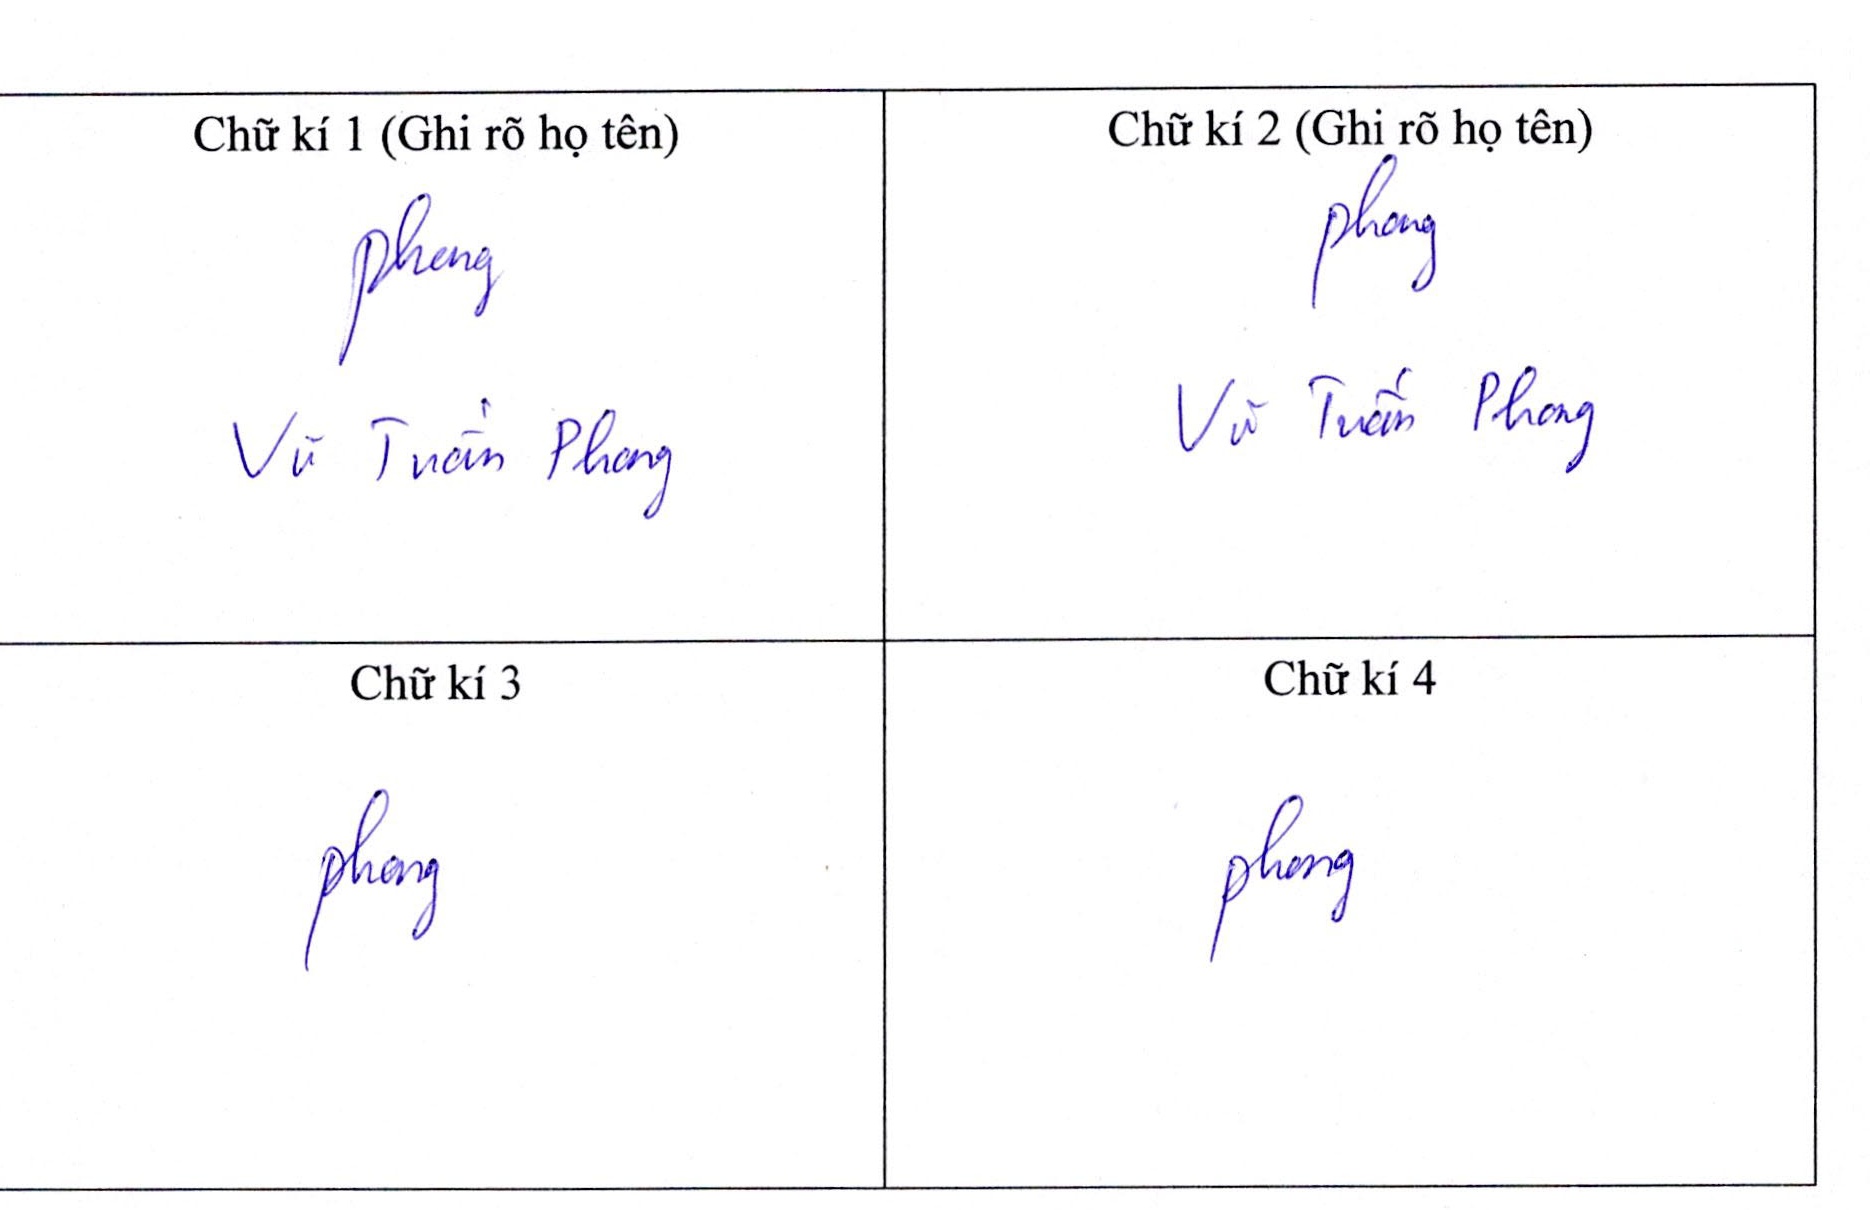 Chữ kí 1 (Ghi rõ họ tên)
phong
Vũ Tuấn Phong
Chữ kí 2 (Ghi rõ họ tên)
phong
Vũ Tuấn Phong
Chữ kí 3
phong
Chữ kí 4
phong